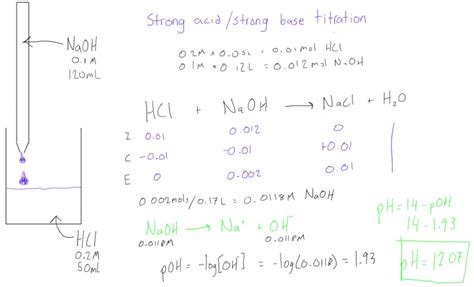 Strong acid/strong base titration
NaOH
0.1M
120mL
0.2M × 0.05L = 0.01mol HCl
0.1M × 0.12L = 0.012mol NaOH
HCl + NaOH → NaCl + H2O
I 0.01 0.012 0
C -0.01 -0.01 +0.01
E 0 0.002 0.01
0.002mols/0.17L = 0.0118M NaOH
NaOH → Na+ + OH-
0.0118M 0.0118M
pOH = -log[OH-] = -log(0.0118) = 1.93
pH = 14 - pOH
14 - 1.93
pH = 12.07
HCl
0.2M
50mL